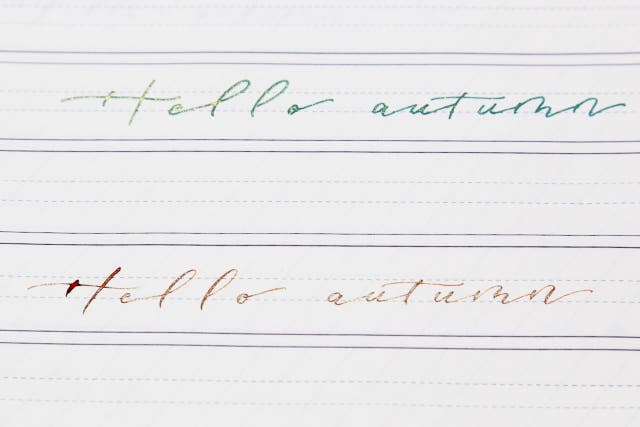 Hello autumn
Hello autumn